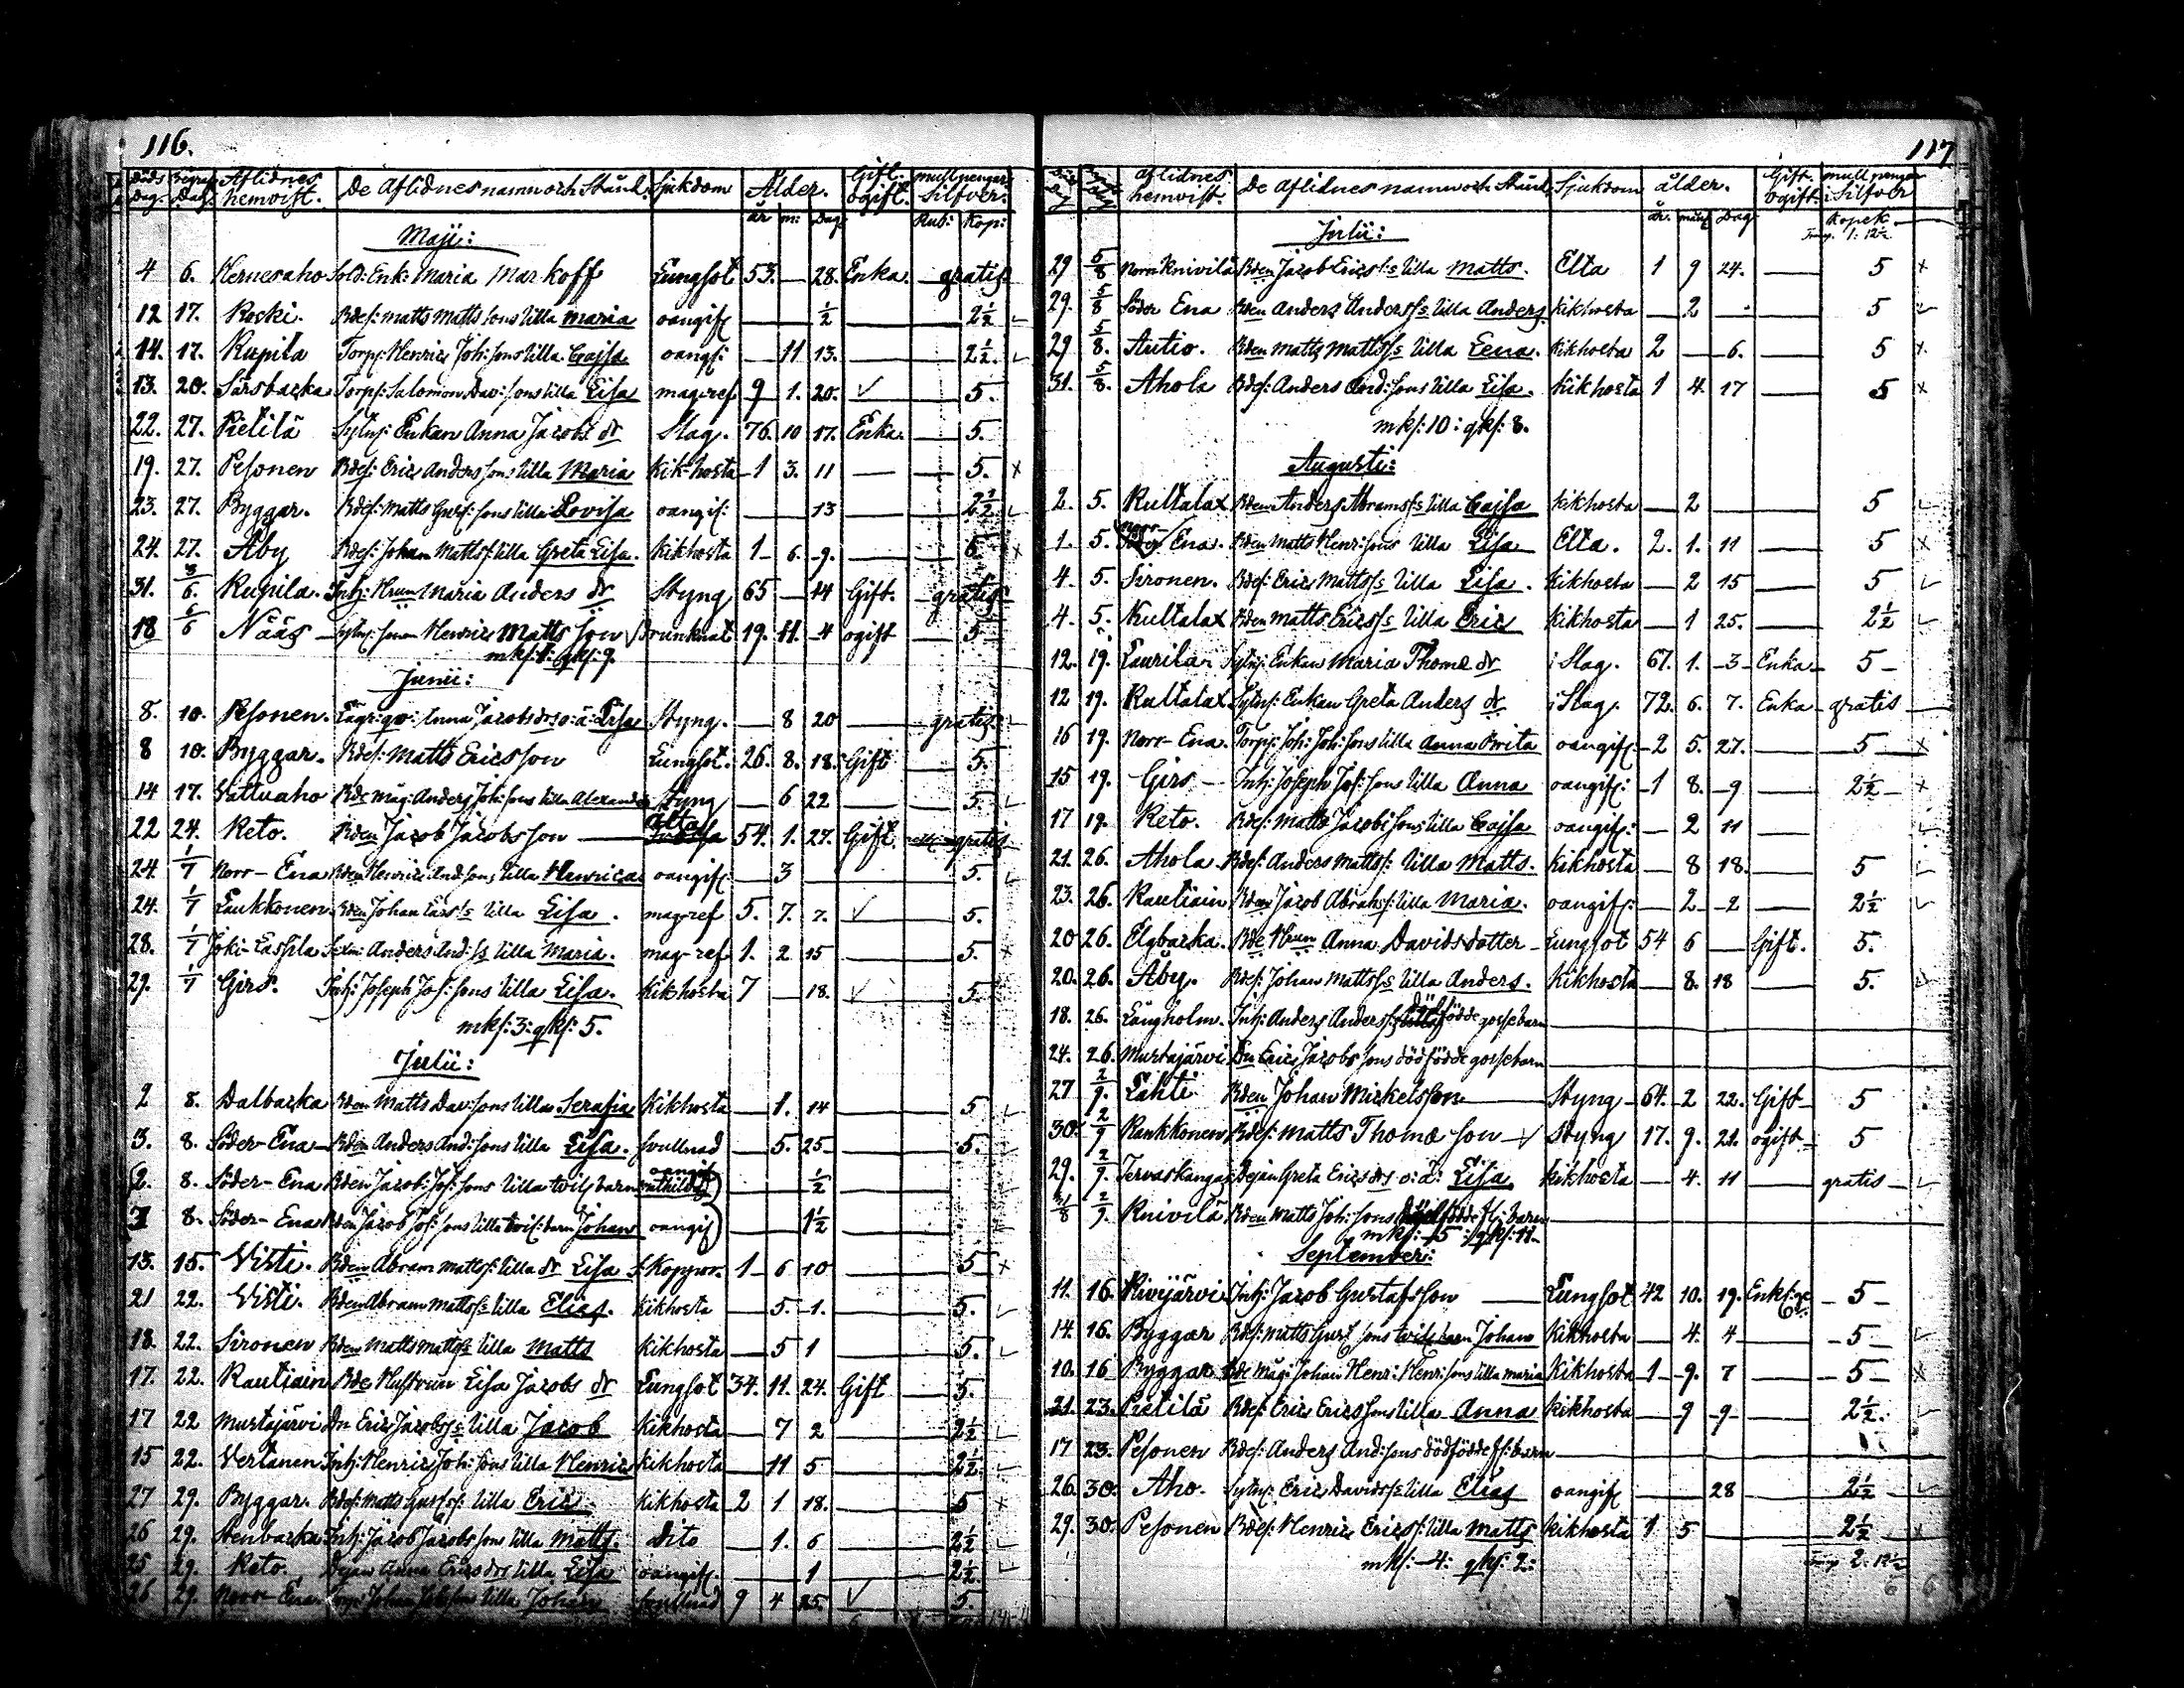 116.
Döds Dag. Begraf. Dag. Aflidnes hemvist. De Aflidnes namn och Stånd. Sjukdom Ålder. Gift. ogift. mullpengar Silfver.
år m: Dag: Rub: Kop:
Maji:
4 6. Hernesaho Sold: Enk: Maria Markoff Lungsot 53. — 28. Enka. gratis
12 17. Rocki. Bdes: Matts Matts sons lilla Maria oangif ½ 2½
14. 17. Kupila Torp: Henric Joh: sons lilla Cajsa oangf: — 11 13. 2½.
13. 20. Sårsbacka Torp: Salomon Dav: sons lilla Lisa mag-ref 9 1. 20. ✓ 5.
22. 27. Pietilä Sytn: Enkan Anna Jacobs dr Slag. 76. 10 17. Enka. 5.
19. 27. Pesonen Bdes: Eric Anders sons lilla Maria Kik-hosta 1 3. 11 — 5. x
23. 27. Byggar. Bdes: Matts Gust: sons lilla Lovisa oangif: 13 2½.
24. 27. Åby Bdes: Johan Matts s: lilla Greta Lisa. Kikhosta 1 6. 9. 5. x
31. 3/6. Kupila. Inh: Hrun Maria Anders dr Styng 65 — 14 Gift. gratis
18 6/6 Nääs Sytn: sonen Henric Matts son Drunknat 19. 11. 4 ogift 5
mks: 1: qks: 9.
Junii:
8. 10. Pesonen. Lägr: qv: Anna Jacobs drs o: ä: Lisa Styng. — 8 20 gratis
8 10. Byggar. Bdes: Matts Ericsson Lungsot. 26. 8. 18. Gift 5.
14 17. Vattuaho Bde måg: Anders Joh: sons lilla Alexander Styng — 6 22 5.
22 24. Keto. Bden Jacob Jacobsson 54. 1. 27. Gift gratis
24 1/7 Norr-Ena Bden Henric And: sons lilla Henrica oangif: — 3 5.
24. 1/7 Laukkonen. Bden Johan Lars s:s lilla Lisa. mag-ref 5. 7. 7. ✓ 5.
28. 1/7 Joki-Laspla Anders And: s:s lilla Maria. mag-ref 1. 2 15 5. x
29. 1/7 Girs. Inh: Joseph Jos: sons lilla Lisa. Kikhosta 7 — 18. ✓ 5.
mks: 3: qks: 5.
Julii:
2 8. Dalbacka Bden Matts Dav: sons lilla Serafia Kikhosta — 1. 14 5
3. 8. Söder-Ena Bden Anders And: sons lilla Lisa. svullnad — 5. 25 5.
2. 8. Söder-Ena Bden Jacob: Jos: sons lilla tvils barn Mathilda oangif ½
3 8. Söder-Ena Bden Jacob Jos: sons lilla tvils: barn Johan oangif 1½
13. 15. Visti. Bden Abram Matts s: lilla dr Lisa Koppor. 1 6 10 5 x
21 22. Visti. Bden Abram Matts s:s lilla Elias. Kikhosta — 5. 1. 5.
18. 22. Sironen Bden Matts Matts s:s lilla Matts Kikhosta — 5 1 5.
17. 22. Rautiain Bde Hustrun Lisa Jacobs dr Lungsot 34. 11. 24. Gift 5.
17 22 Murtajärvi Dn Eric Jacobs s:s lilla Jacob Kikhosta — 7 2 2½
15 22. Vertanen Inh: Henric Joh: sons lilla Henric Kikhosta — 11 5 2½.
27 29. Byggar. Bdes: Matts Gust s: lilla Eric Kikhosta 2 1 18. 5 x
26 29. Stenbacka Inh: Jacob Jacobs sons lilla Matts. dito — 1. 6 2½
25 29. Keto. Dejan Anna Erics drs lilla Lisa oangif. 1 2½.
26 29. Norr-Ena Torp: Johan Joh: sons lilla Johan svullnad 9 4 25. ✓ 5.
117
Aflidnes hemvist. De Aflidnes namn och Stånd. Sjukdom ålder. Gift. ogift. mull pengar i Silfver
år. mån. Dag. Kopek
1: 12½
Julii:
29 5/8 Norr Knivilä Bden Jacob Erics s:s lilla Matts. Elta 1 9 24. 5 x
29. 5/8 Söder Ena Bden Anders Anders s:s lilla Anders. Kikhosta — 2 5
29 5/8. Autio. Bden Matts Matts s:s lilla Lena. Kikhosta 2 — 6. 5 x
31. 5/8. Ahola Bdes: Anders And: sons lilla Lisa. Kikhosta 1 4. 17 5 x
mks: 10: qks: 8.
Augusti:
2. 5. Kultalax Bden Anders Abrams s:s lilla Cajsa Kikhosta — 2 5
1. 5. Norr- Ena. Bden Matts Henr: sons lilla Lisa Elta. 2. 1. 11 5 x
4. 5. Sironen. Bdes: Eric Matts s:s lilla Lisa. Kikhosta — 2 15 5
4. 5. Kultalax Bden Matts Erics s:s lilla Eric Kikhosta — 1 25. 2½
12. 19. Laurila Sytn: Enkan Maria Thome dr i Slag. 67. 1. 3 Enka 5
12 19. Kultalax Sytn: Enkan Greta Anders dr i Slag. 72. 6. 7. Enka gratis
16 19. Norr-Ena. Torp: Joh: Joh: sons lilla Anna Brita oangif: 2 5. 27. 5 x
15 19. Girs Inh: Joseph Jos: sons lilla Anna oangif: 1 8. 9 2½ x
17 19. Keto. Bdes: Matts Jacobs sons lilla Cajsa oangif: — 2 11
21. 26. Ahola. Bdes: Anders Matts s: lilla Matts. Kikhosta — 8 18. 5
23. 26. Rautiain Bden Jacob Abrah s: lilla Maria. oangif: — 2 2 2½
20 26. Elgbacka. Bde Hrun Anna Davidsdotter Lungsot 54 6 — Gift. 5.
20. 26. Åby. Bdes: Johan Matts s:s lilla Anders. Kikhosta — 8. 18 5.
18. 26. Långholm. Inh: Anders Anders s: dödfödde gossebarn
24. 26. Murtajärvi Dn Eric Jacobs sons dödfödde gossebarn
27 2/9. Lahti Bden Johan Mickelsson Styng 64. 2 22. Gift 5
30. 2/9 Rankkonen Bdes: Matts Thomæ son Styng 17. 9. 21. ogift 5
29. 2/9. Tervaskangas Dejan Greta Erics drs o: ä: Lisa. Kikhosta — 4. 11 gratis
31/8 2/9. Knivilä Bden Matts Joh: sons dödfödde fl: barn
mks: 15: qks: 11.
September:
11. 16. Kivijärvi Inh: Jacob Gustafsson Lungsot 42 10. 19. Enkl: 5
14. 16. Byggar Bdes: Matts Gust sons tvils barn Johan Kikhosta — 4. 4 5
10. 16 Byggar Bde måg: Johan Henr: Henr: sons lilla Maria Kikhosta 1 9. 7 5 x
21. 23. Pietilä Bdes: Eric Erics sons lilla Anna Kikhosta — 9 9 2½.
17 23. Pesonen Bdes: Anders And: sons dödfödde fl: barn
26. 30. Aho. Sytn: Eric Davids s:s lilla Elias oangif 28 2½
29. 30. Pesonen Bdes: Henric Erics s: lilla Matts Kikhosta 1 5 2½ x
mks: 4: qks: 2: 2: 12½